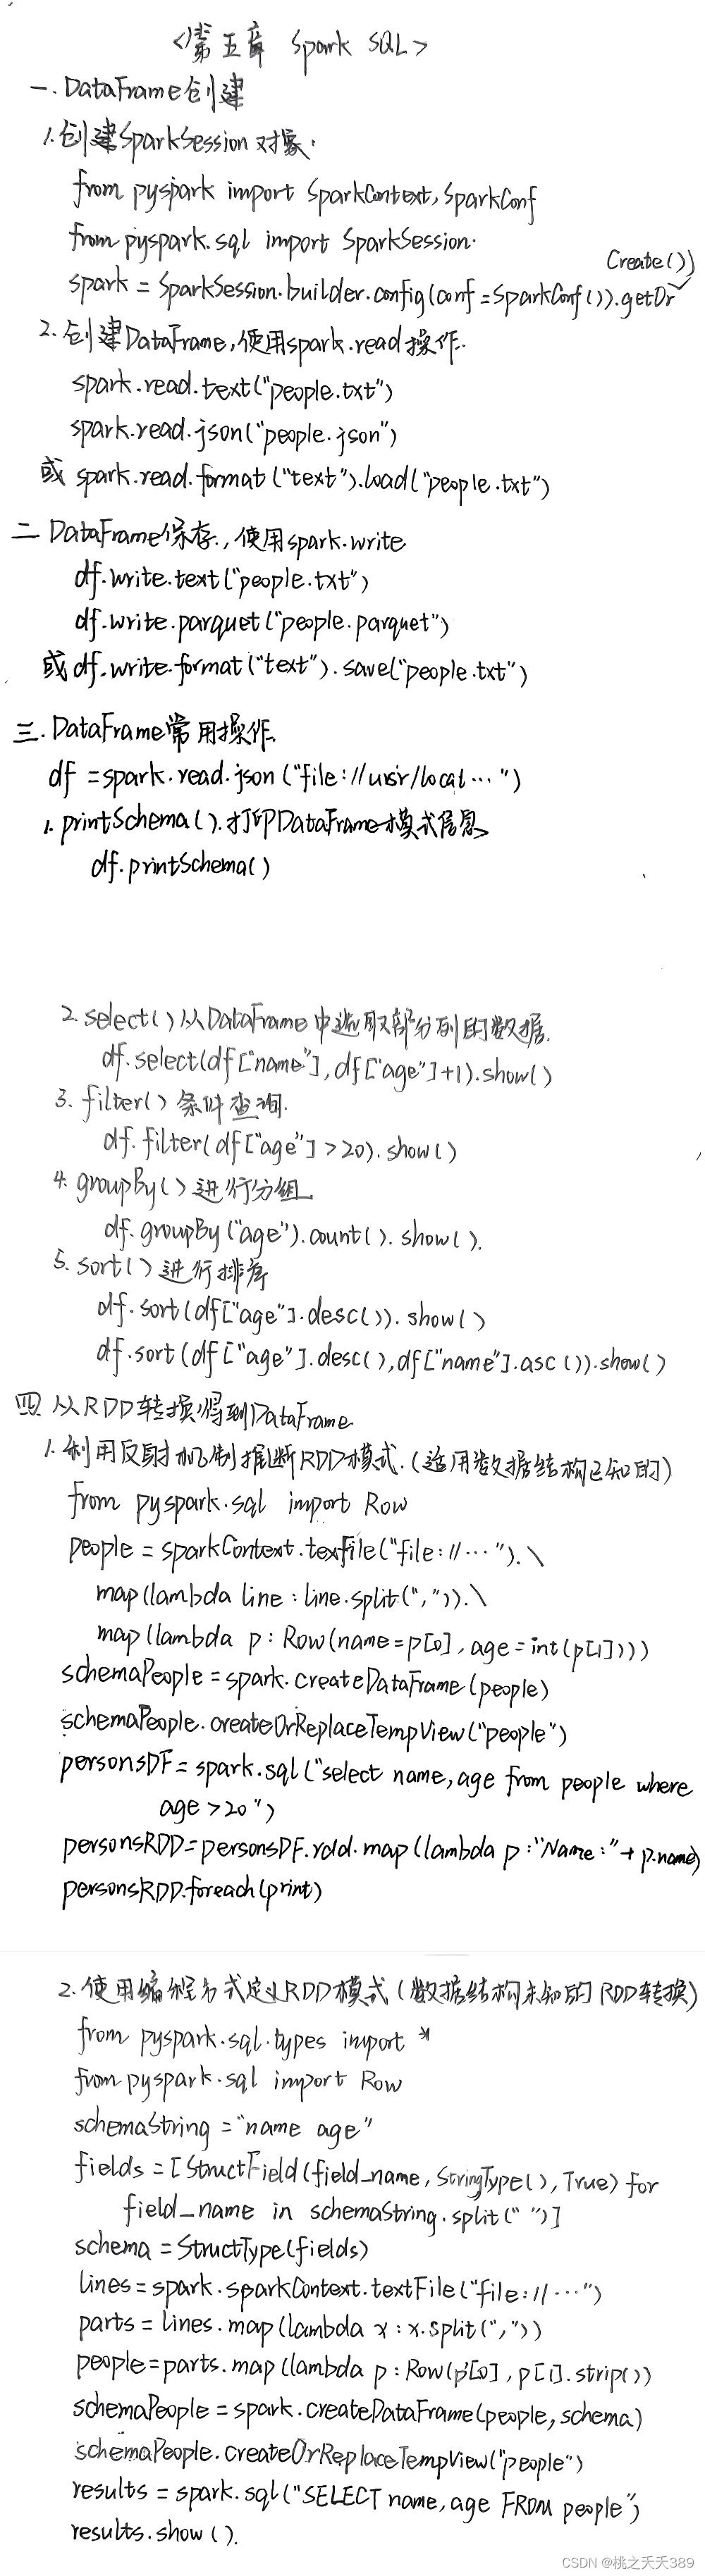 <第五章 Spark SQL>
一. DataFrame创建
1. 创建SparkSession对象.
from pyspark import SparkContext, SparkConf
from pyspark.sql import SparkSession.
Create())
spark = SparkSession.builder.config(conf = SparkConf()).getOr
2. 创建DataFrame,使用spark.read操作.
spark.read.text("people.txt")
spark.read.json("people.json")
或 spark.read.format("text").load("people.txt")
二 DataFrame保存., 使用spark.write
df.write.text("people.txt")
df.write.parquet("people.parquet")
或 df.write.format("text").save("people.txt")
三. DataFrame常用操作.
df = spark.read.json("file://usr/local…")
1. printSchema().打印DataFrame模式信息
df.printSchema()
2. select() 从DataFrame中选取部分列的数据.
df.select(df["name"], df["age"]+1).show()
3. filter() 条件查询.
df.filter(df["age"] > 20).show()
4. groupBy() 进行分组
df.groupBy("age").count().show().
5. sort() 进行排序
df.sort(df["age"].desc()).show()
df.sort(df["age"].desc(), df["name"].asc()).show()
四 从RDD转换得到DataFrame
1. 利用反射机制推断RDD模式.(适用数据结构已知的)
from pyspark.sql import Row
people = sparkContext.texfile("file://…").\
map(lambda line : line.split(",")).\
map(lambda p : Row(name=p[0], age = int(p[1])))
schemaPeople = spark.createDataFrame(people)
schemaPeople.createOrReplaceTempView("people")
personsDF = spark.sql("select name, age from people where
age > 20")
personsRDD = personsDF.rdd.map(lambda p : "Name:" + p.name)
personsRDD.foreach(print)
2. 使用编程方式定义RDD模式(数据结构未知的RDD转换)
from pyspark.sql.types import *
from pyspark.sql import Row
schemaString = "name age"
fields = [StructField(field_name, StringType(), True) for
field_name in schemaString.split(" ")]
schema = StructType(fields)
lines = spark.sparkContext.textFile("file://…")
parts = lines.map(lambda x : x.split(","))
people = parts.map(lambda p : Row(p[0], p[1].strip())
schemaPeople = spark.createDataFrame(people, schema)
schemaPeople.createOrReplaceTempView("people")
results = spark.sql("SELECT name, age FROM people")
results.show().
CSDN @桃之夭夭389